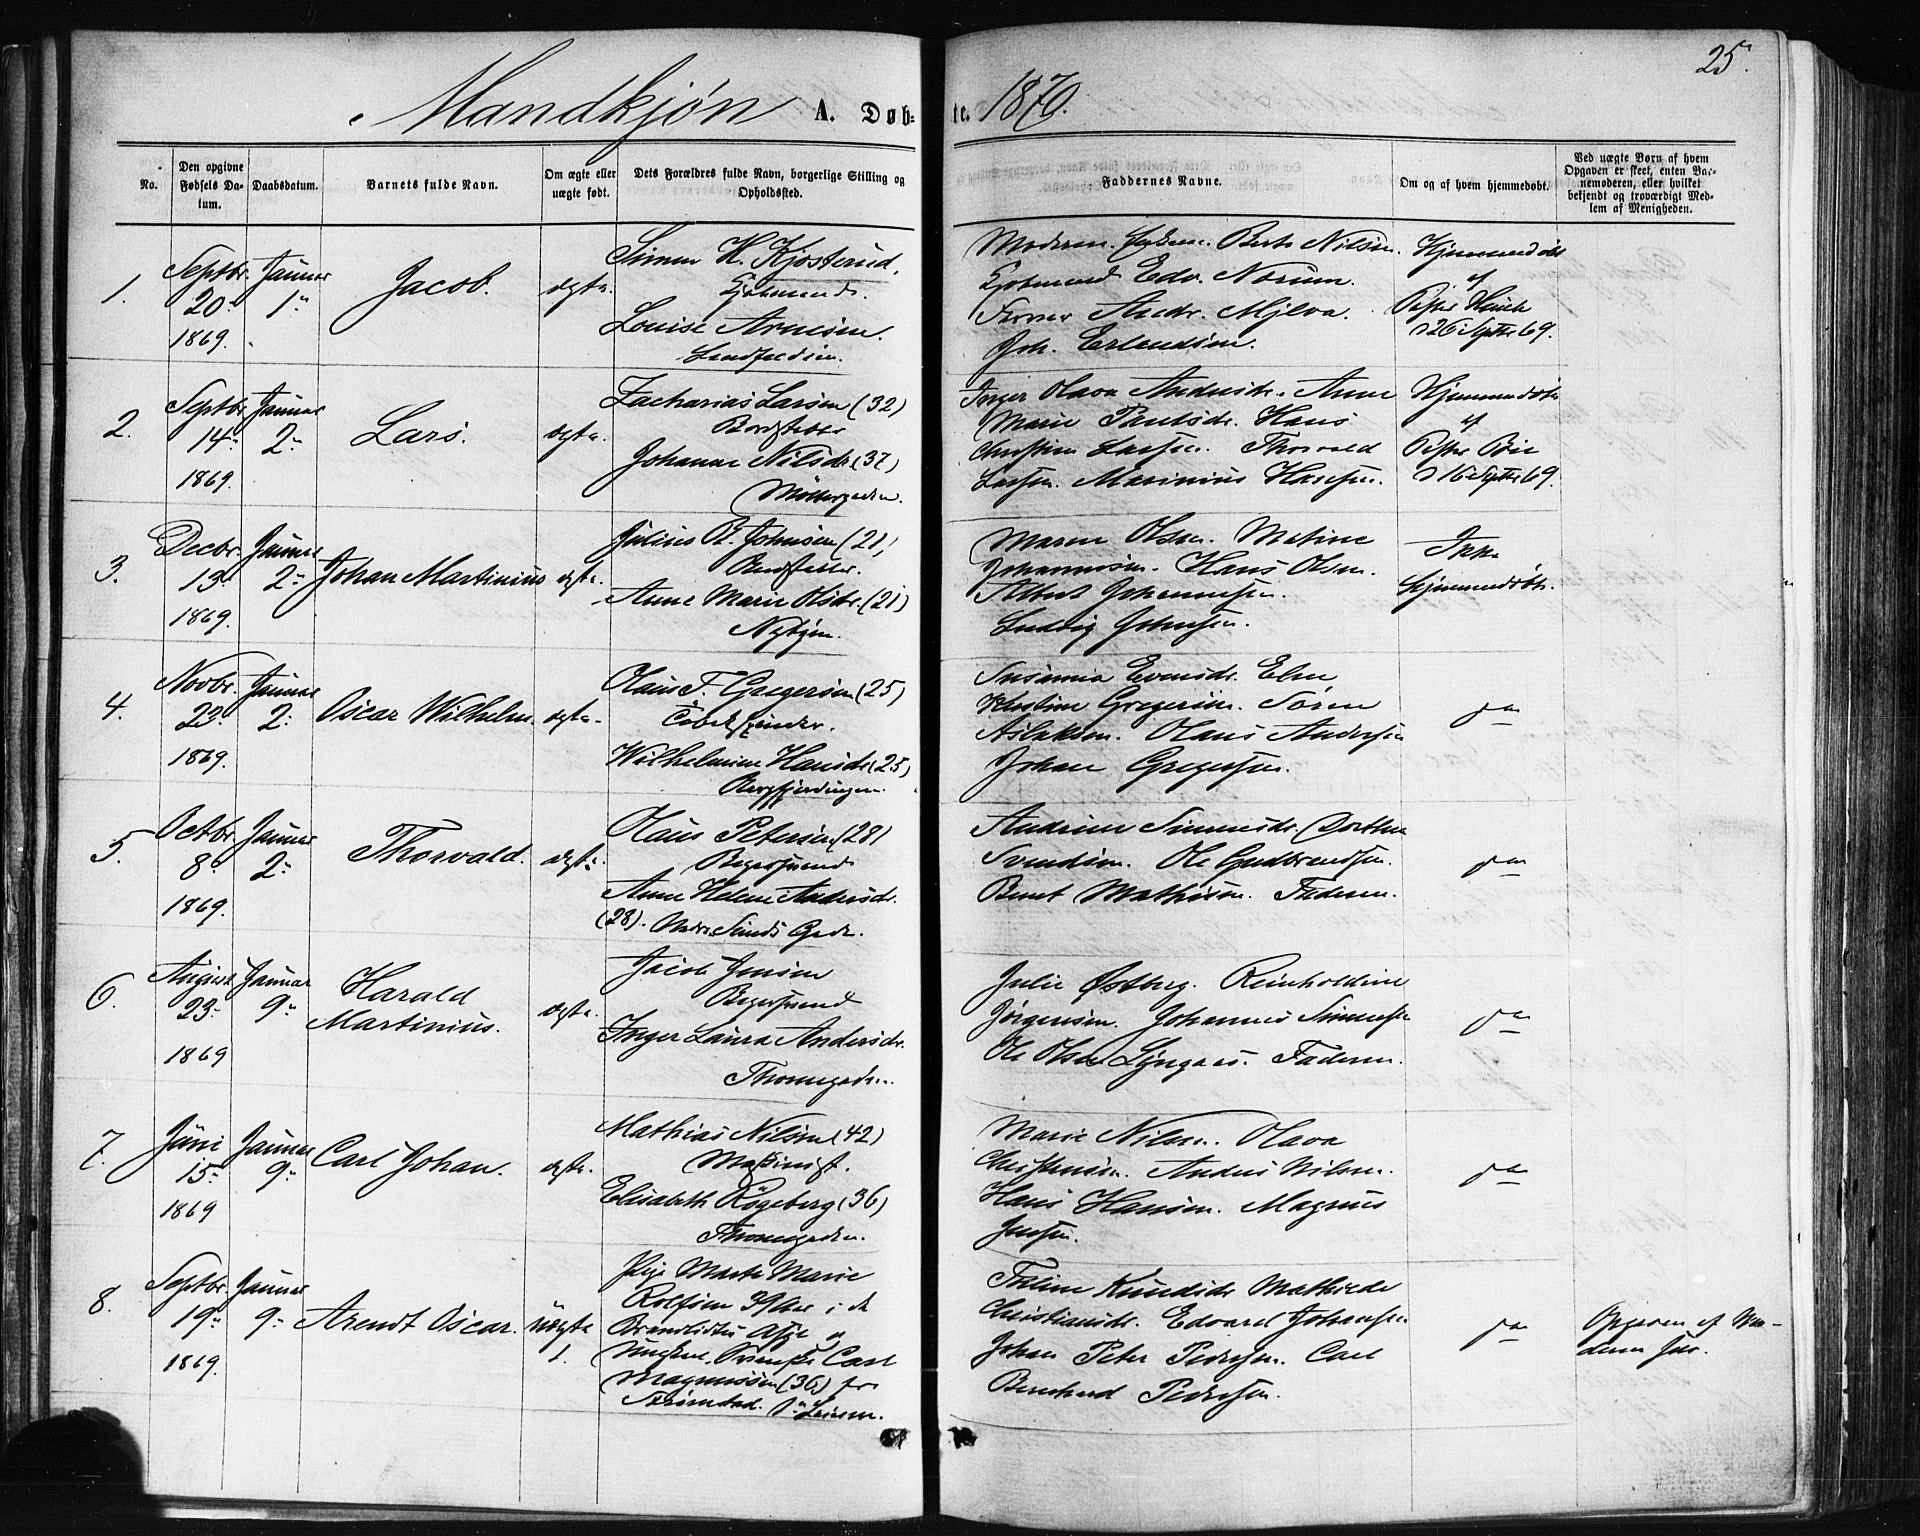 25.
Mandkjøn A. Døb-
te. 1870.
No.
Den opgivne Fødsels Da-
tum.
Daabsdatum.
Barnets fulde Navn.
Om ægte eller
uægte født.
Dets Forældres fulde Navn, borgerlige Stilling og
Opholdssted.
Faddernes Navne.
Om og af hvem hjemmedøbt.
Ved uægte Børn af hvem
Opgaven er skeet, enten Bar-
nemoderen, eller hvilket
bekjendt og troværdigt Med-
lem af Menigheden.
1.
Septbr.
20
1869.
Januar
1
Jacob.
ægte.
Simen H. Kjosterud,
Louise Arnesen.
Moderen. Berte Nilsen.
Edv. Norum.
Andr. Mjelva.
Joh. Erlandsen.
Hjemmedøbt
af
26 Septbr 69.
2.
Septbr
14
1869.
Januar
2
Lars.
ægte.
Zacharias Larsen (32)
Johanne Nilsdr. (37)
Møllergaden.
Inger Olava Andersdr. Anne
Marie Paulsdr. Hans
Christian Larsen. Thorvald
Larsen. Marinius Hansen.
Hjemmedøbt
af
16 Septbr 69.
3.
Decbr.
13
1869.
Januar
2
Johan Martinius
ægte.
Julius B. Johnsen (21)
Anne Marie Olsdr. (21)
Nybyen.
Maren Olsen. Matine
Johannesen. Hans Olsen.
Albert Johannesen.
Ludvig Johnsen.
Ikke
hjemmedøbt.
4.
Novbr.
23
1869.
Januar
2
Oscar Wilhelm.
ægte.
Olaus F. Gregersen (25)
Tobakspinder.
Wilhelmine Hansdr. (25)
Bergfjerdingen.
Susanna Evensdr. Elen
Kristine Gregersen. Søren
Aslaksen. Olaus Andersen
Johan Gregersen.
5.
Octbr.
8
1869.
Januar
2
Thorvald.
ægte.
Olaus Petersen (28)
Bryggesvend
Anne Helene Andersdr.
(28). Nedre Sunds Gade.
Andrine Simensdr. Dorthea
Svendsen. Ole Gudbrandsen.
Bernt Mathisen. Faderen.
6.
August
23
1869
Januar
9
Harald
Martinius.
ægte.
Jacob Jensen
Inger Laura Andersdr.
Thornegaden.
Julie Østberg. Reinholdine
Jørgensen. Johannes Simensen
Ole Olsen Lyngaas. Faderen.
7.
Juni
15
1869
Januar
9
Carl Johan.
ægte.
Mathias Nilsen (42)
Maskinist.
Elisabeth Røgeberg (36)
Thornegaden.
Marie Nilsen. Olava
Christensen. Anders Nilsen.
Hans Hansen. Magnus
Jensen.
8.
Septbr.
19
1869.
Januar
9
Arendt Oscar.
uægte
1.
Pige Marte Marie
Rolfsen
Carl
Magnussen (36) fra
Strømstad.
Knudsdr. Mathilde
Christiansdr. Edvard Johansen
Johan Peter Pedersen. Carl
Bernhard Pedersen.
Opgaven af Mo-
deren selv.